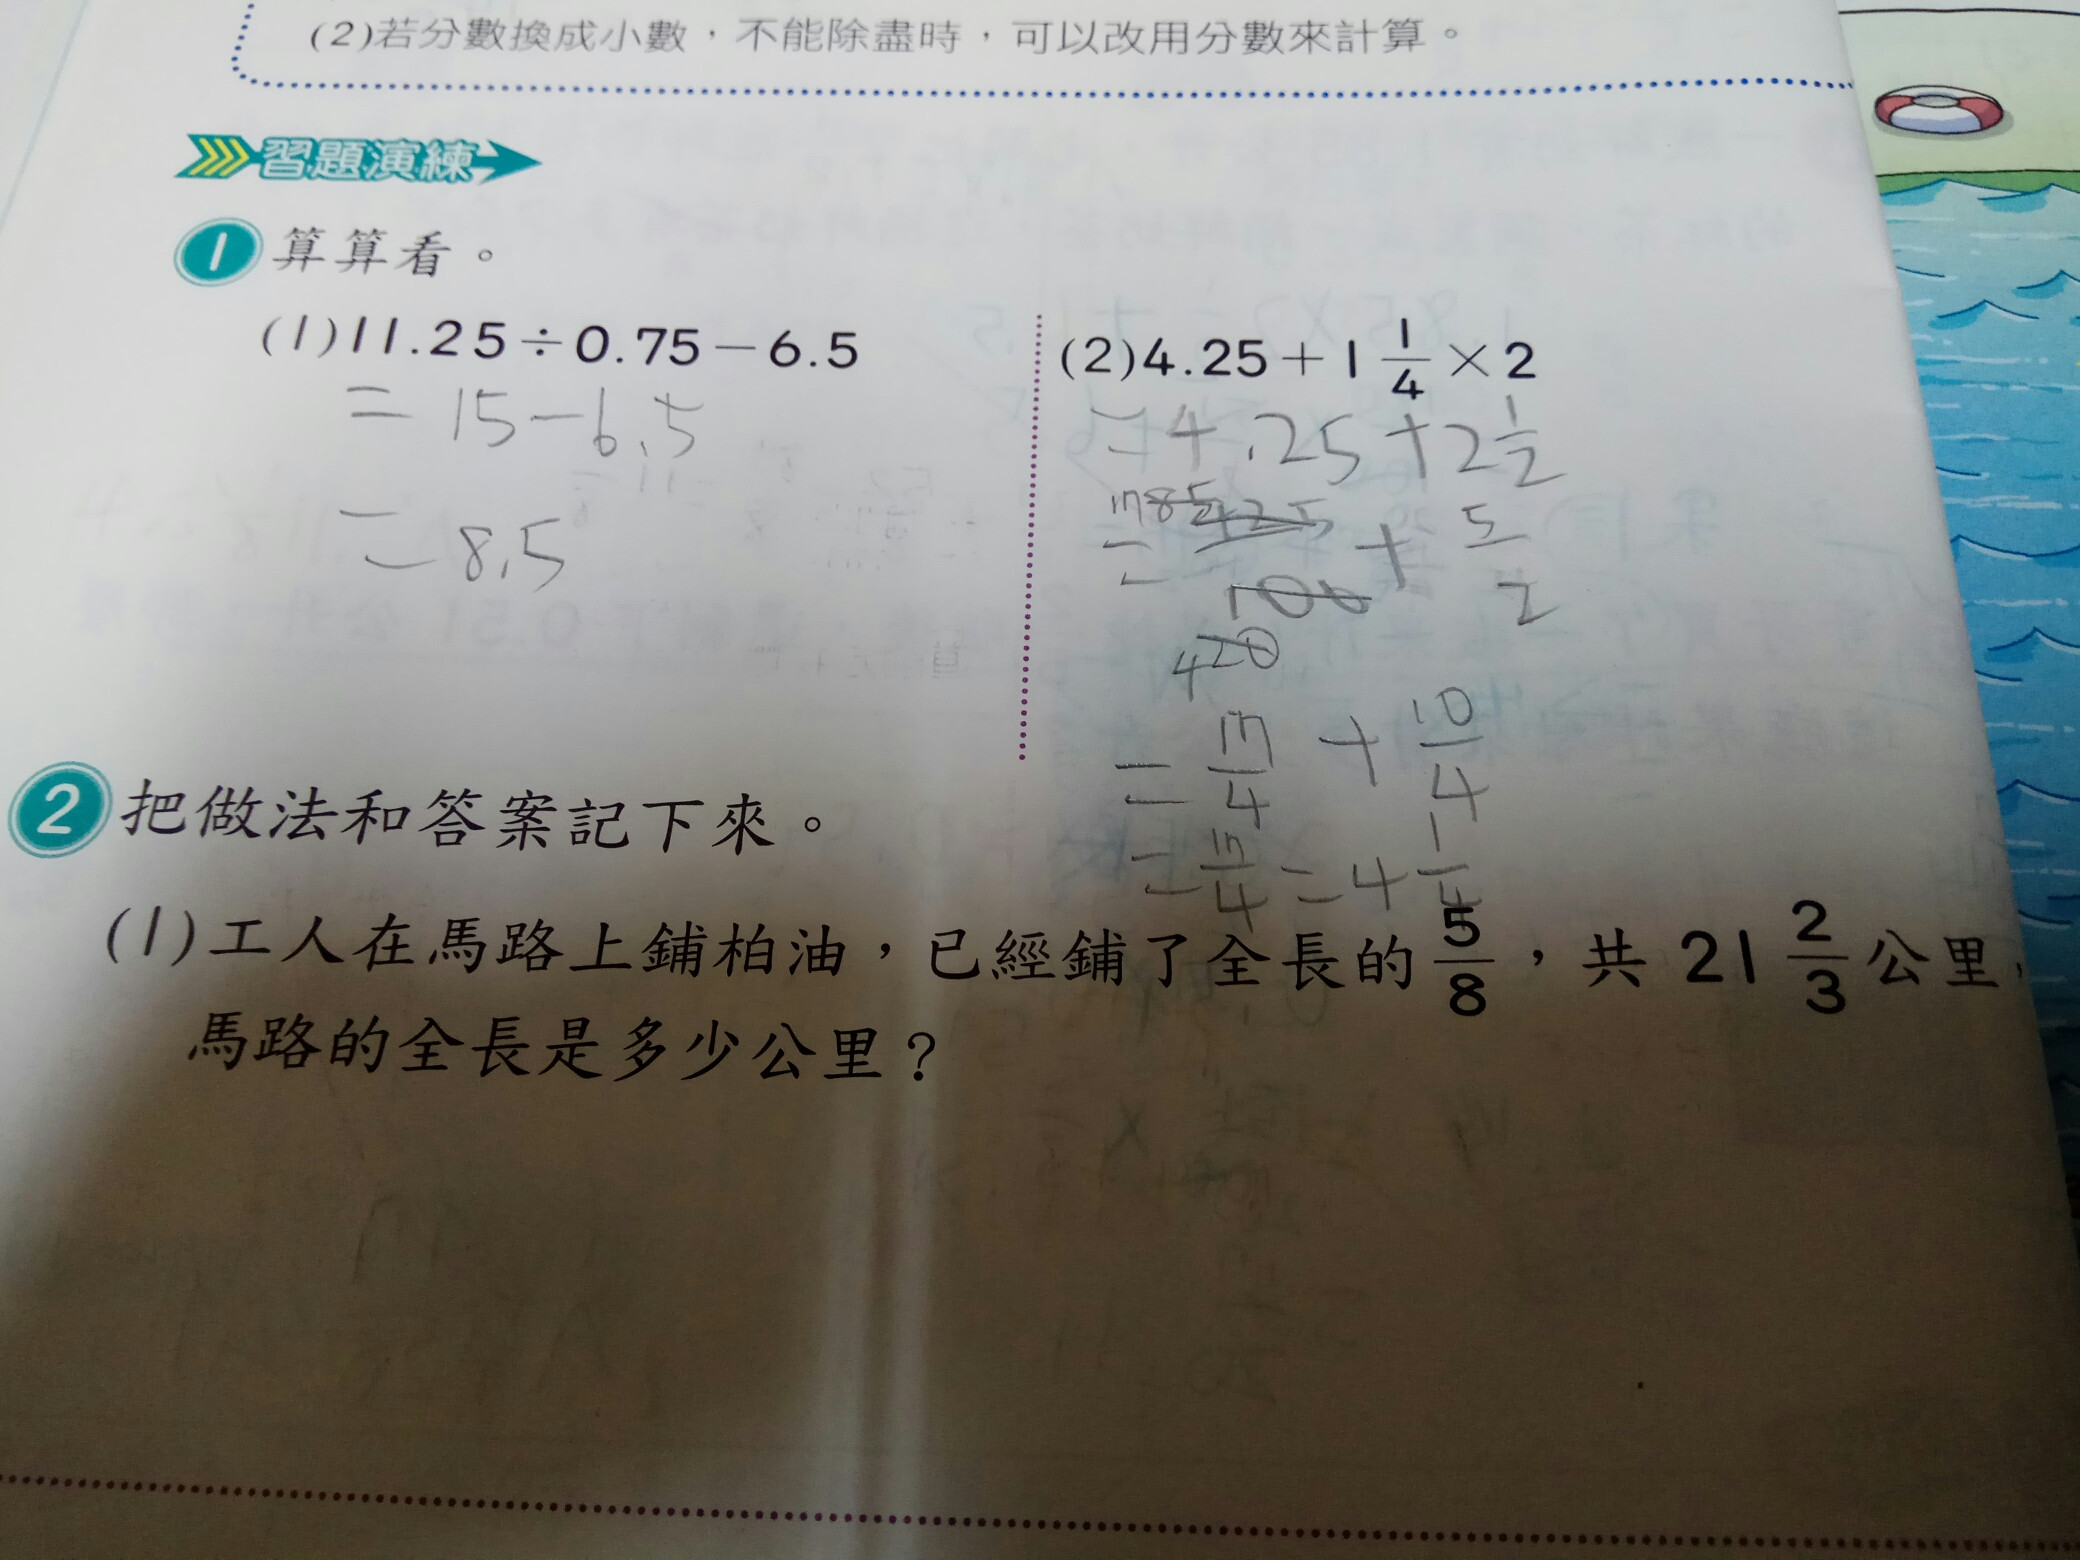 (2)若分數換成小數，不能除盡時，可以改用分數來計算。
習題演練
1 算算看。
(1)11.25÷0.75－6.5
= 15 - 6.5
= 8.5
(2)4.25＋1 1/4×2
= 4.25 + 2 1/2
= 17 85 425/100 + 5/2
4 20
= 17/4 + 10/4
= 17/4 = 4 1/4
2 把做法和答案記下來。
(1)工人在馬路上鋪柏油，已經鋪了全長的5/8，共 21 2/3公里，
馬路的全長是多少公里？